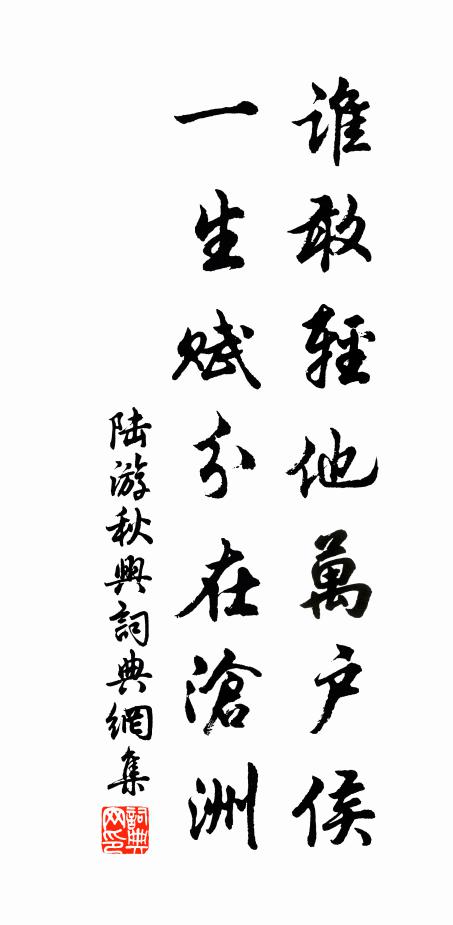 誰敢輕他萬户侯
一生賦分在滄洲
陆游秋興詞典網集
詞典网印